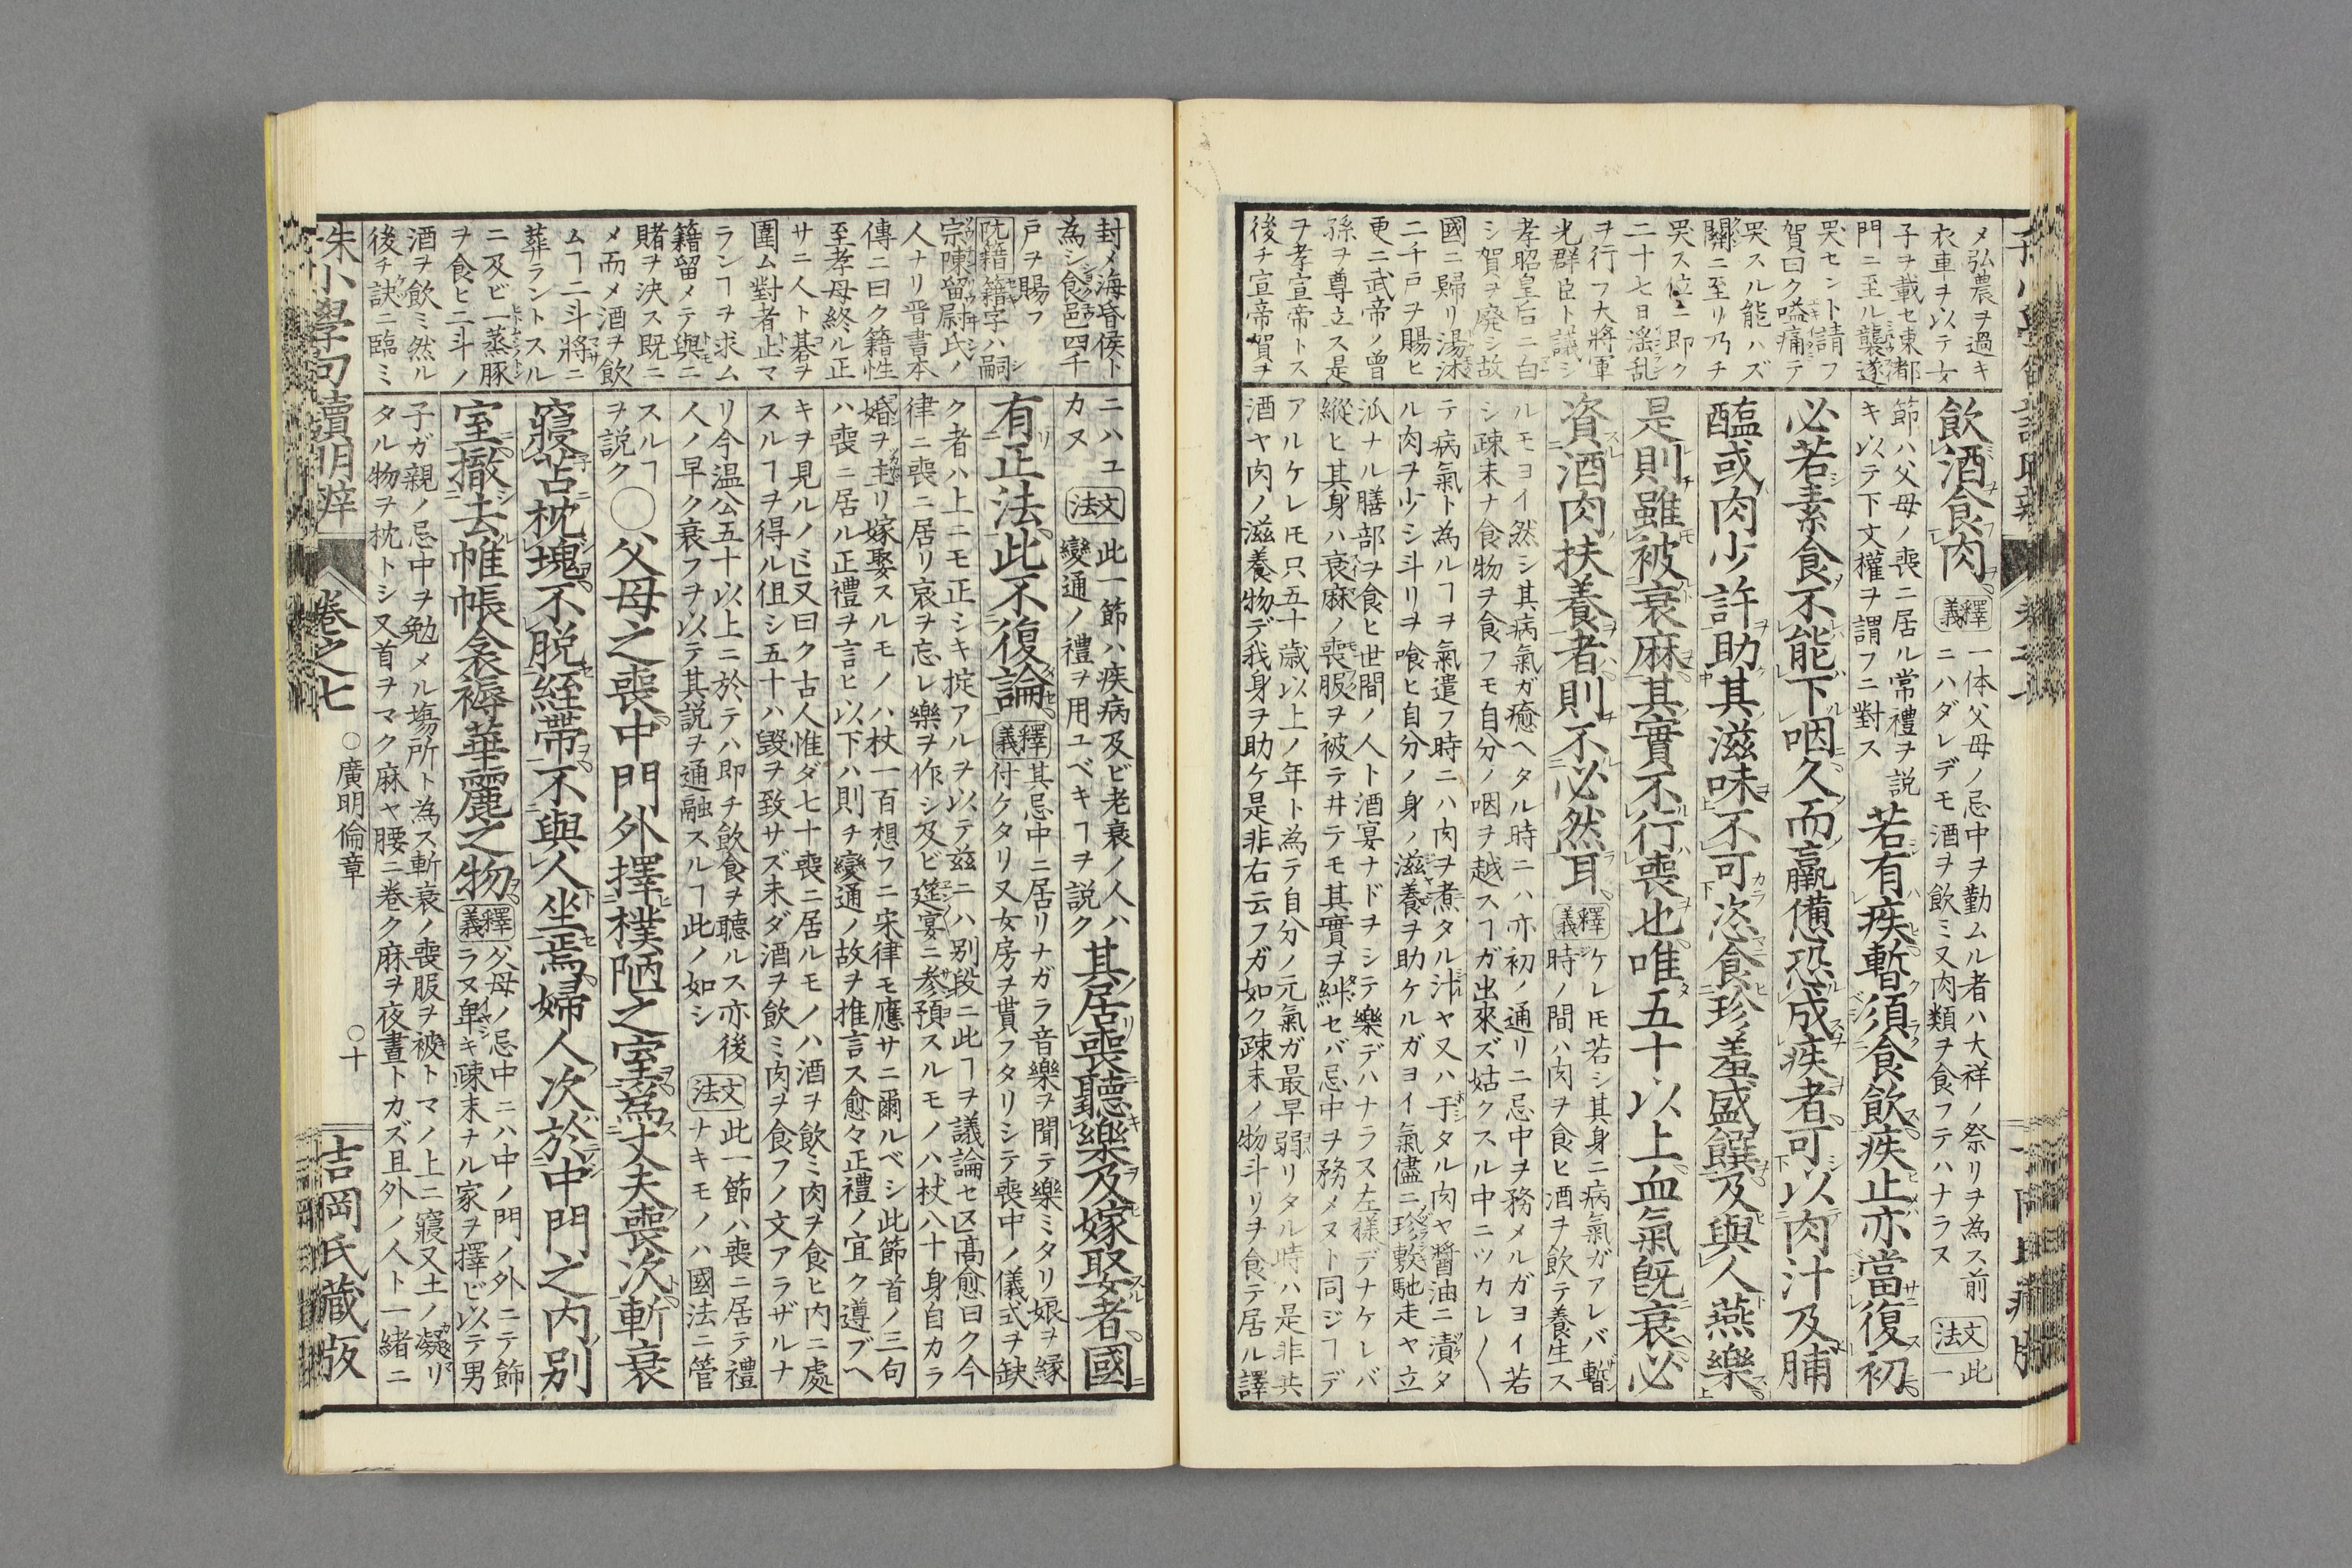 メ弘農ヲ過キ
衣車ヲ以テ女
子ヲ載セ東都
門ニ至ル龔遂
哭セント請フ
賀曰ク嗌痛テ
哭スル能ハズ
闕ニ至リ乃チ
哭ス位ニ即ク
二十七日滛乱
ヲ行フ大將軍
光群臣ト議シ
孝昭皇后ニ白
シ賀ヲ廃シ故
國ニ歸リ湯沐
二千戸ヲ賜ヒ
更ニ武帝ノ曾
孫ヲ尊立ス是
ヲ孝宣帝トス
後チ宣帝賀ヲ
飲酒食肉
釋義
一体父母ノ忌中ヲ勤ムル者ハ大祥ノ祭リヲ為ス前
ニハダレデモ酒ヲ飲ミ又肉類ヲ食フテハナラヌ
文法
此一
節ハ父母ノ喪ニ居ル常禮ヲ説
キ以テ下文權ヲ謂フニ對ス
若有疾暫須食飲疾止亦當復初
必若素食不能下咽久而羸憊恐成疾者可以肉汁及脯
醢或肉少許助其滋味不可恣食珍羞盛饌及與人燕樂
是則雖被衰麻其實不行喪也唯五十以上血氣旣衰必
資酒肉扶養者則不必然耳
釋義
ケレ𪜈若シ其身ニ病氣ガアレバ暫
時ノ間ハ肉ヲ食ヒ酒ヲ飲テ養生ス
ルモヨイ然シ其病氣ガ癒ヘタル時ニハ亦初ノ通リニ忌中ヲ務メルガヨイ若
シ疎末ナ食物ヲ食フモ自分ノ咽ヲ越スヿガ出來ズ姑クスル中ニツカレ〱
テ病氣ト為ルヿヲ氣遣フ時ニハ肉ヲ煮タル汁ヤ又ハ干タル肉ヤ醬油ニ漬タ
ル肉ヲ少シ斗リヲ喰ヒ自分ノ身ノ滋養ヲ助ケルガヨイ氣儘ニ珍敷馳走ヤ立
派ナル膳部ヲ食ヒ世間ノ人ト酒宴ナドヲシテ樂デハナラス左樣デナケレバ
縱ヒ其身ハ衰麻ノ喪服ヲ被テヰテモ其實ヲ糾セバ忌中ヲ務メヌト同ジヿデ
アルケレ𪜈只五十歳以上ノ年ト為テ自分ノ元氣ガ最早弱リタル時ハ是非共
酒ヤ肉ノ滋養物デ我身ヲ助ケ是非右云フガ如ク疎末ノ物斗リヲ食テ居ル譯
封メ海昏侯ト
為シ食邑四千
戸ヲ賜フ
阮籍 籍字ハ嗣
宗陳留尉氏ノ
人ナリ晋書本
傳ニ曰ク籍性
至孝母終ル正
サニ人ト碁ヲ
圍ム對者止マ
ランヿヲ求ム
籍留メテ與ニ
賭ヲ決ス既ニ
メ而メ酒ヲ飲
ムヿ二斗將ニ
葬ラントスル
ニ及ビ一蒸豚
ヲ食ヒ二斗ノ
酒ヲ飲ミ然ル
後チ訣ニ臨ミ
ニハユ
カヌ
文法
此一節ハ疾病及ビ老衰ノ人ハ
變通ノ禮ヲ用ユベキヿヲ説ク
其居喪聽樂及嫁娶者國
有正法此不復論
釋義
其忌中ニ居リナガラ音樂ヲ聞テ樂ミタリ娘ヲ縁
付ケタリ又女房ヲ貰フタリシテ喪中ノ儀式ヲ缺
ク者ハ上ニモ正シキ掟アルヲ以テ玆ニハ別段ニ此ヿヲ議論セヌ高愈曰ク今
律ニ喪ニ居リ哀ヲ忘レ樂ヲ作シ及ビ筵宴ニ参預スルモノハ杖八十身自カラ
婚ヲ主リ嫁娶スルモノハ杖一百想フニ宋律モ應サニ爾ルベシ此節首ノ三句
ハ喪ニ居ル正禮ヲ言ヒ以下ハ則チ變通ノ故ヲ推言ス愈々正禮ノ宜ク遵ブヘ
キヲ見ルノミ又曰ク古人惟ダ七十喪ニ居ルモノハ酒ヲ飲ミ肉ヲ食ヒ内ニ處
スルヿヲ得ル但シ五十ハ毀ヲ致サズ未ダ酒ヲ飲ミ肉ヲ食フノ文アラザルナ
リ今温公五十以上ニ於テハ即チ飲食ヲ聽ルス亦後
人ノ早ク衰フヲ以テ其説ヲ通融スルヿ此ノ如シ
文法
此一節ハ喪ニ居テ禮
ナキモノハ國法ニ管
スルヿ
ヲ説ク
〇父母之喪中門外擇樸陋之室為丈夫喪次斬衰
寢苫枕塊不脱絰帶不與人坐焉婦人次於中門之内別
室撤去帷帳衾褥華麗之物
釋義
父母ノ忌中ニハ中ノ門ノ外ニテ飾
ラヌ卑キ疎末ナル家ヲ擇ビ以テ男
子ガ親ノ忌中ヲ勉メル塲所ト為ス斬衰ノ喪服ヲ被トマノ上ニ寢又土ノ凝リ
タル物ヲ枕トシ又首ヲマク麻ヤ腰ニ卷ク麻ヲ夜晝トカズ且外ノ人ト一緒ニ
朱小學句讀明辨
卷之七
〇廣明倫章
〇十
吉岡氏藏版